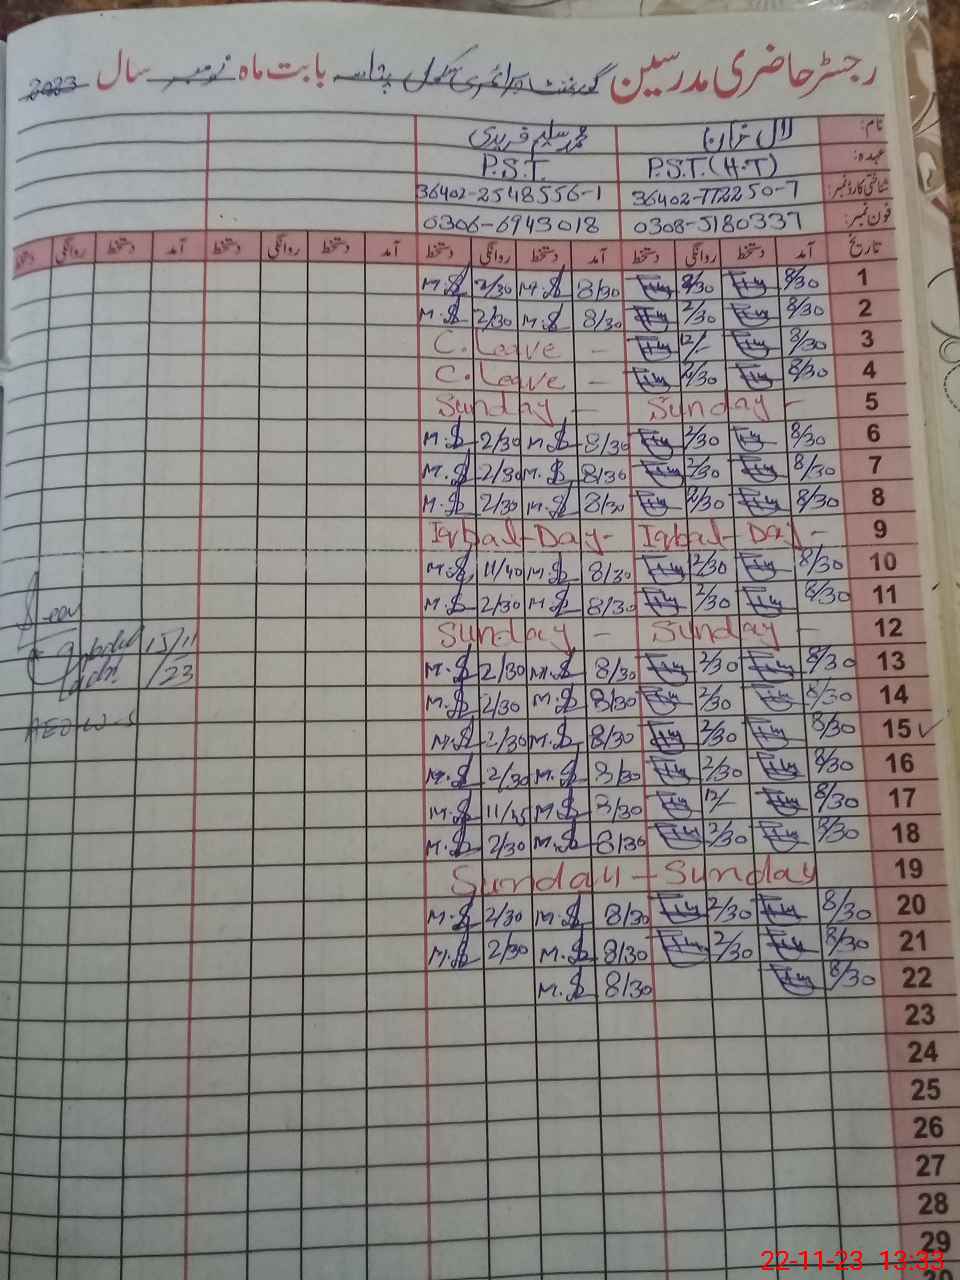 رجسٹر حاضری مدرسین گورنمنٹ پرائمری سکول بابت ماہ نومبر سال 2023
نام: لال محمد سلیم فریدی
عہدہ: P.S.T.(H.T) P.S.T.
شناختی کارڈ نمبر: 36402-7722507 36402-2548556-1
فون نمبر: 0308-5180337 0306-6943018
تاریخ آمد دستخط روانگی دستخط آمد دستخط روانگی دستخط آمد دستخط روانگی دستخط آمد دستخط روانگی دستخط
1 8/30 2/30 8/30 M.S 2/30 M.S
2 8/30 2/30 8/30 M.S 2/30 M.S
3 8/30 12/- C. Leave -
4 8/30 2/30 C. Leave -
5 Sunday - Sunday -
6 8/30 2/30 8/30 M.S 2/30 M.S
7 8/30 2/30 8/30 M.S 2/30 M.S
8 8/30 2/30 8/30 M.S 2/30 M.S
9 Iqbal-Day- Iqbal-Day-
10 8/30 12/30 8/30 M.S 11/40 M.S
11 8/30 2/30 8/30 M.S 2/30 M.S
12 Sunday - Sunday -
13 8/30 2/30 8/30 M.S 2/30 M.S
14 8/30 2/30 8/30 M.S 2/30 M.S
15 8/30 2/30 8/30 M.S 2/30 M.S
16 8/30 2/30 8/30 M.S 2/30 M.S
17 8/30 12/- 8/30 M.S 11/45 M.S
18 8/30 2/30 8/30 M.S 2/30 M.S
19 Sunday - Sunday
20 8/30 2/30 8/30 M.S 2/30 M.S
21 8/30 2/30 8/30 M.S 2/30 M.S
22 8/30 8/30 M.S
23
24
25
26
27
28
29
30
Seen
15/11/23
AEO W-S
22-11-23 13:33